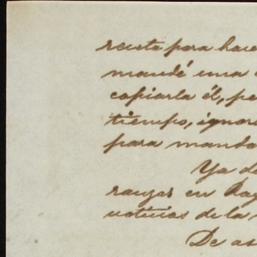 para hace
mandé una
copiarla él, pe
tiempo, ignora
para manda
Ya d
en
noticias de la
De as